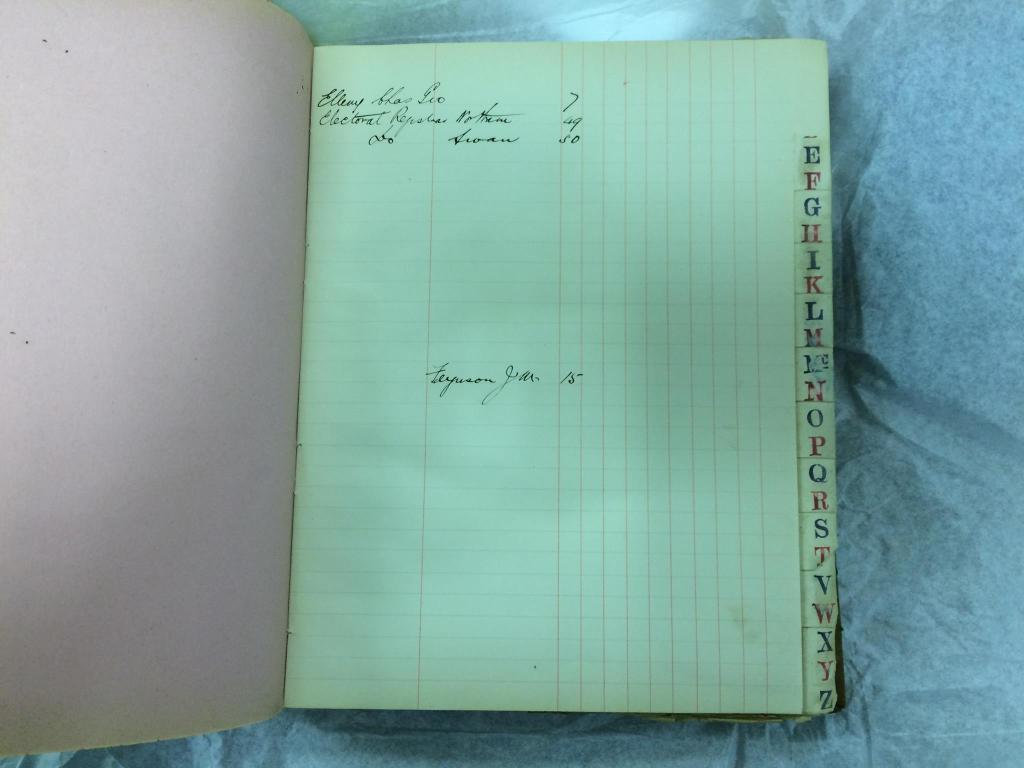 Ellemy Chas Geo 7
Electoral Registrar Notham 49
Do Swan 50
Ferguson J. M. 15
E
F
G
H
I
K
L
M
Mc
N
O
P
Q
R
S
T
V
W
X
Y
Z